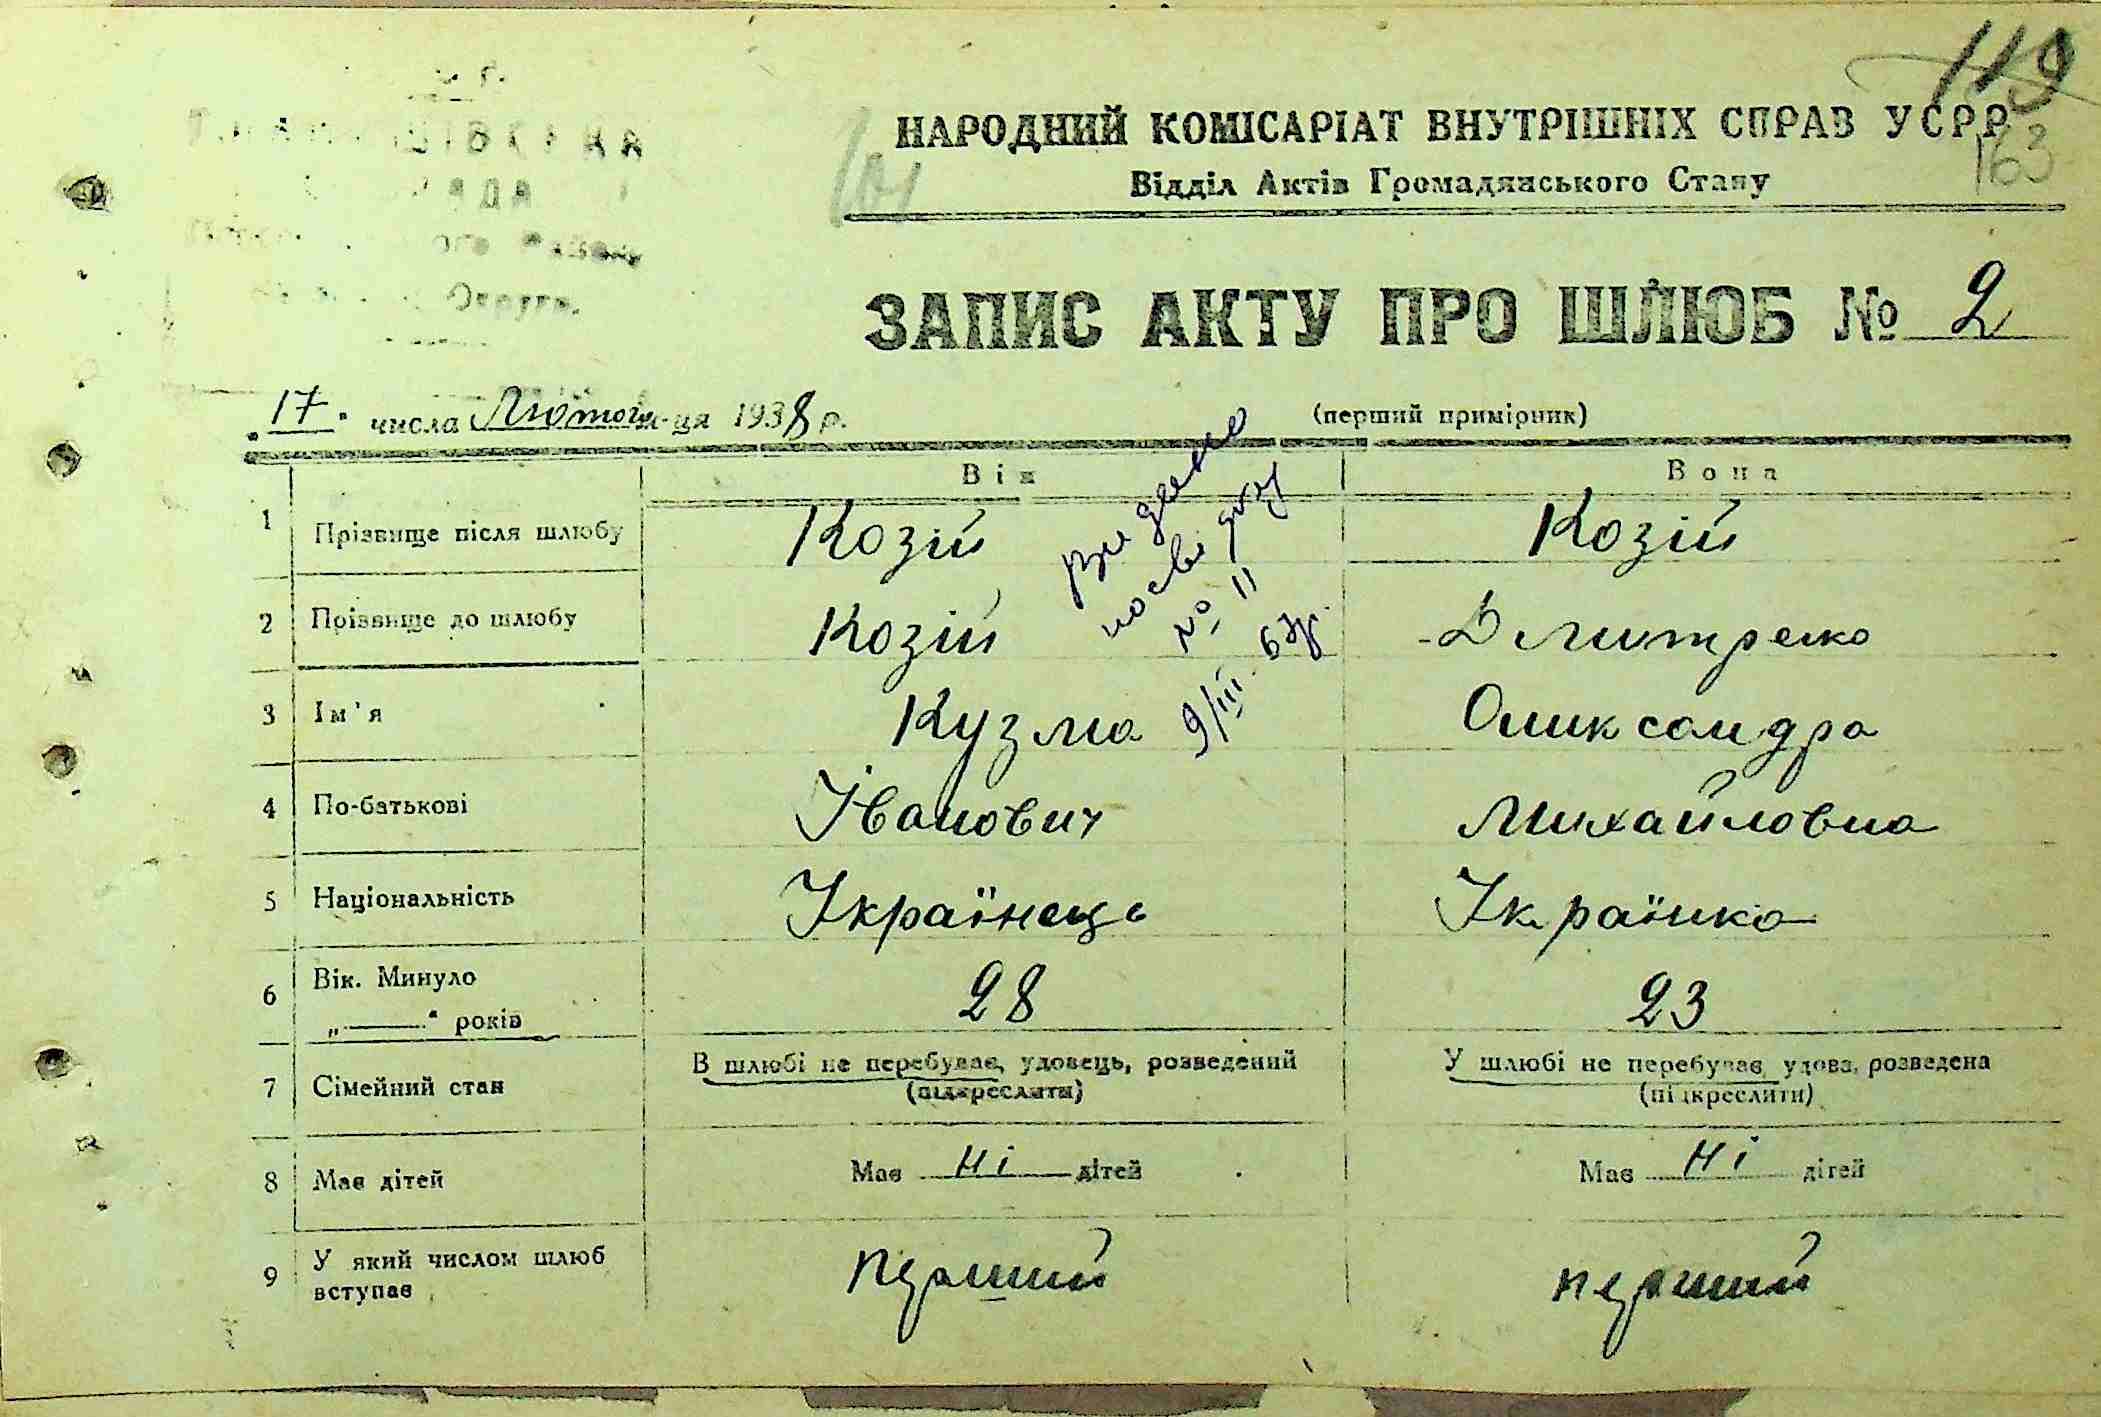 119
163
101
НАРОДНИЙ КОМІСАРІАТ ВНУТРІШНІХ СПРАВ УСРР
Відділ Актів Громадянського Стану
Округи.
ЗАПИС АКТУ ПРО ШЛЮБ № 2
„17" числа Лютого м-ця 1938 р. (перший примірник)
Він Вона
1 Прізвище після шлюбу Козій Козій
2 Прізвище до шлюбу Козій Дмитренко
3 Ім'я Кузма Оликсандра
4 По-батькові Іванович Михайловна
5 Національність Українець Українка
6 Вік. Минуло „——" років 28 23
7 Сімейний стан В шлюбі не перебував, удовець, розведений (підкреслити) У шлюбі не перебуває, удова, розведена (підкреслити)
8 Має дітей Має ні дітей Має ні дітей
9 У який числом шлюб вступає перший перший
видано
посвідку
№ 11
9/III 67р.